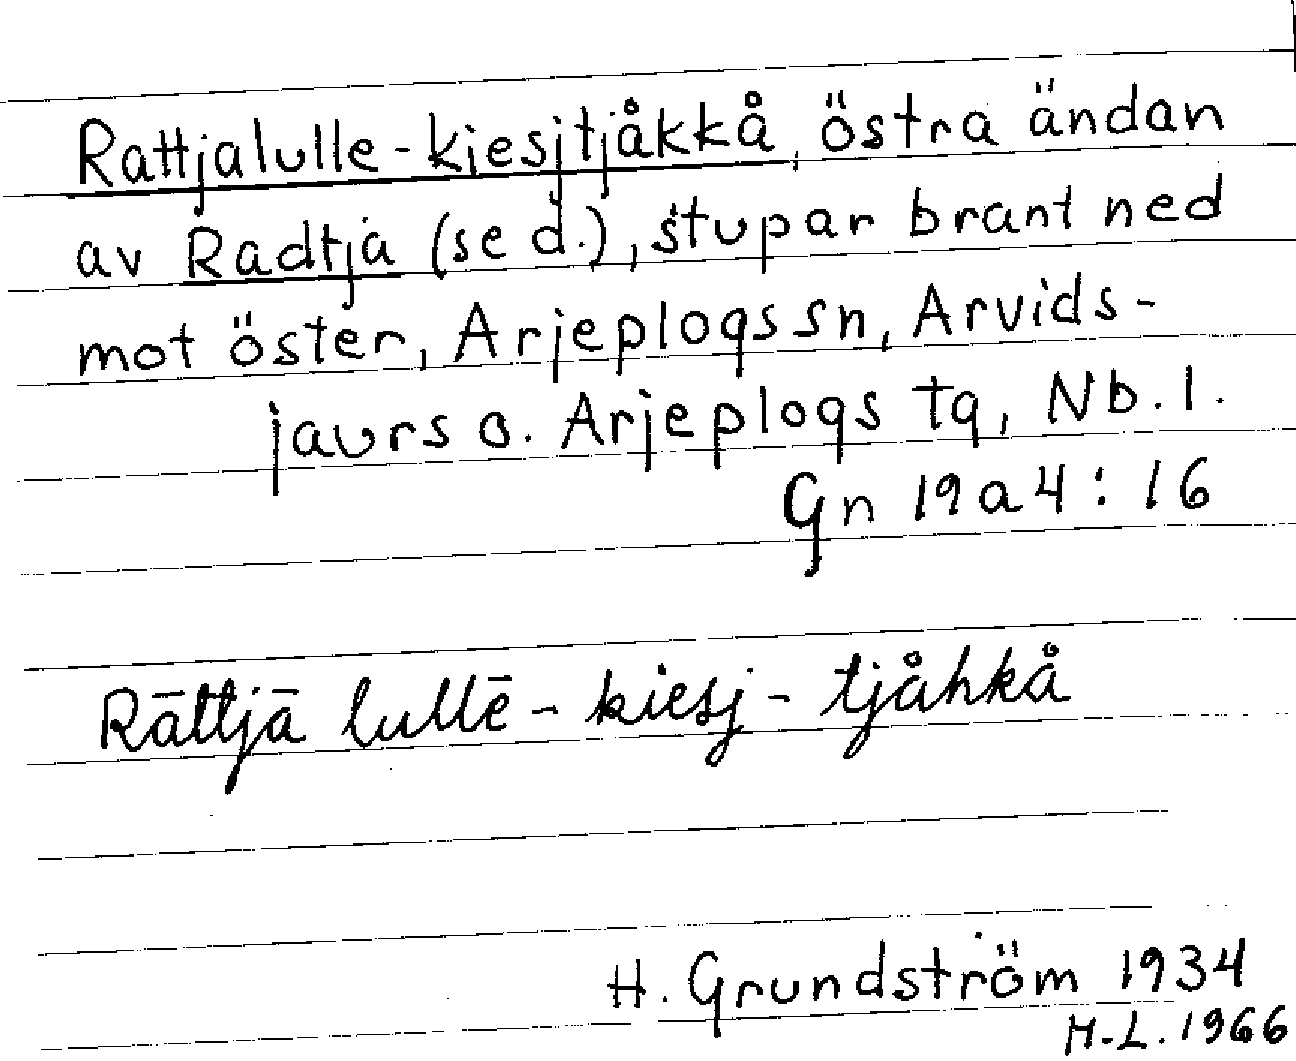 Rattjalulle-kiesjtjåkkå, östra ändan
av Radtja (se d.), stupar brant ned
mot öster, Arjeplogs sn, Arvids-
jaurs o. Arjeplogs tg, Nb. l.
Gn 19a4:16
Rāttjā lullē - kiesj - tjåhkå
H. Grundström 1934
H-L. 1966